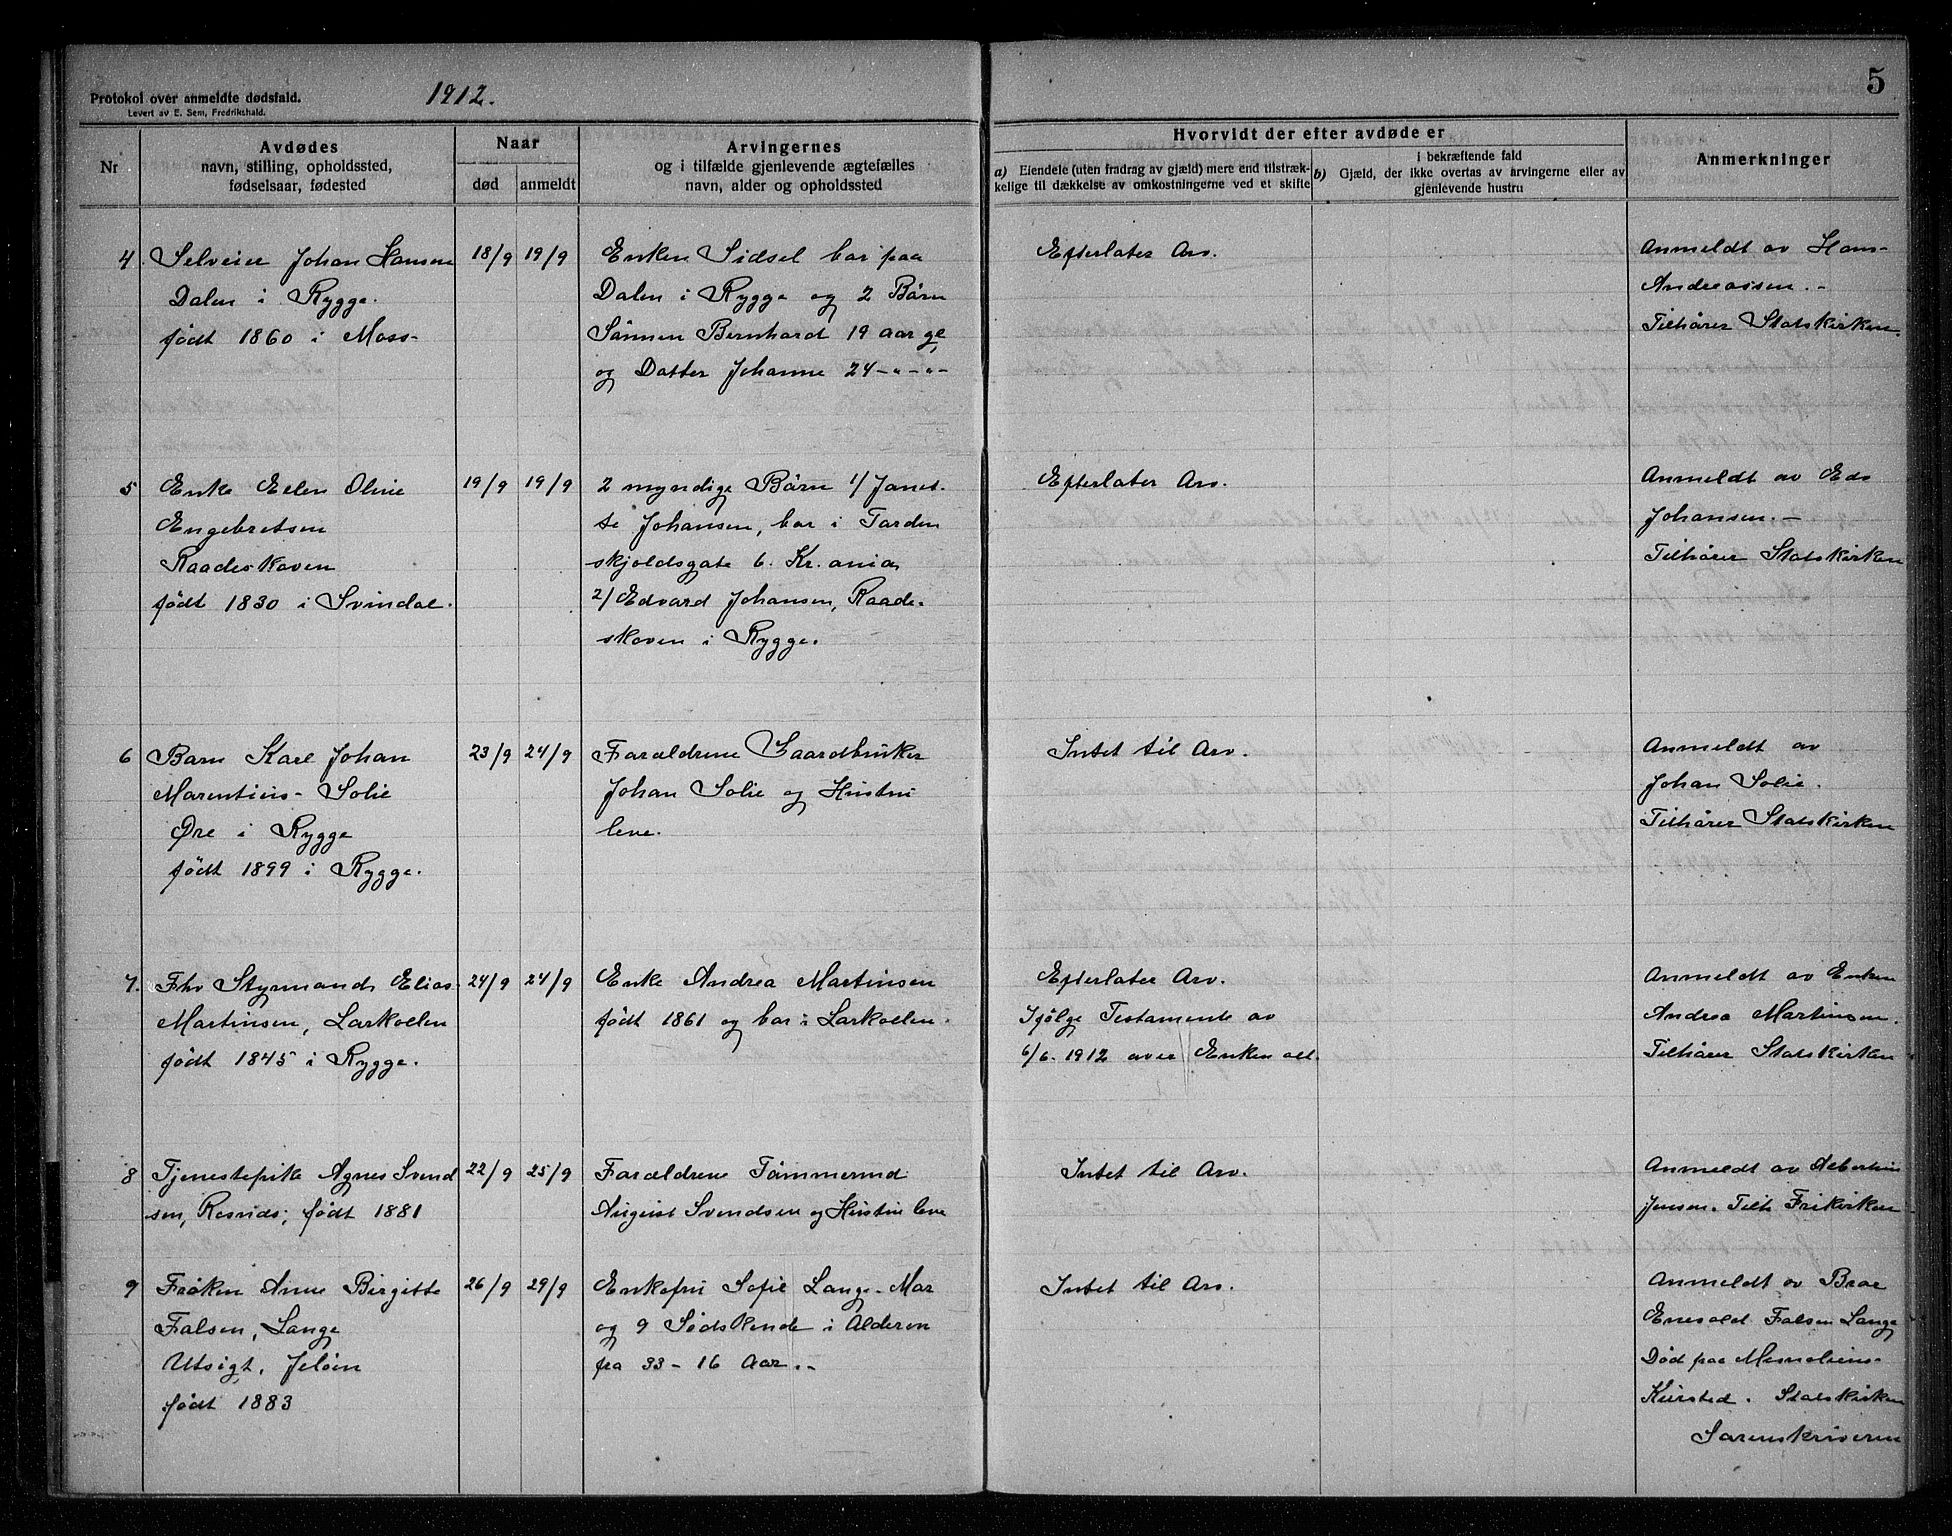 Protokol over anmeldte dødsfald.
Levert av E. Sem, Fredrikshald.
1912.
5
Nr
Avdødes
navn, stilling, opholdssted,
fødselsaar, fødested
Naar
død
anmeldt
Arvingernes
og i tilfælde gjenlevende ægtefælles
navn, alder og opholdssted
Hvorvidt der efter avdøde er
a) Eiendele (uten fradrag av gjæld) mere end tilstræk-
kelige til dækkelse av omkostningerne ved et skifte
i bekræftende fald
b) Gjæld, der ikke overtas av arvingerne eller av
gjenlevende hustru
Anmerkninger
4.
Selveier Johan Hansen
Dalen i Rygge.
født 1860 i Moss-
18/9
19/9
Enken Sidsel bor paa
Dalen i Rygge og 2 Børn
Sønnen Bernhardt 19 aar gl
og Datter Johanne 24 -"-"-
Efterlater Arv.
Anmeldt av Hans
Andreassen. -
Tilhører Statskirken.
5
Enke Ellen Oline
Engebretsen
Raadeskoven
født 1830 i Svindal.
19/9
19/9
2 myndige Børn 1/ Janet-
te Johansen, bor i Torden
skjoldsgate 6. Kr.ania
2/ Edvard Johansen, Raade-
skoven i Rygge.
Efterlater Arv.
Anmeldt av Edv
Johansen. -
Tilhører Statskirken
6
Barn Karl Johan
Marentius Solie
Øre i Rygge
født 1899 i Rygge.
23/9
24/9
Forældrene Gaardbruker
Johan Solie og Hustru
leve.
Intet til Arv.
Anmeldt av
Johan Solie.
Tilhører Statskirken
7.
Fhv Styrmand Elias
Martinsen, Larkollen
født 1845 i Rygge.
24/9
24/9
Enke Andrea Martinsen
født 1861 og bor i Larkollen.
Efterlater Arv.
Ifølge Testamente av
6/6. 1912 arver Enken alt.
Anmeldt av Enken
Andrea Martinsen.
Tilhører Statskirken
8
Tjenestepike Agnes Svend
sen, født 1881
22/9
25/9
Forældrene Tømmermd
August Svendsen og Hustru leve
Intet til Arv.
Anmeldt av
Jensen. Tilh Frikirken
9
Frøken Anne Birgitte
Falsen, Lange
Utsigt, Jeløen
født 1883
26/9
29/9
Enkefru Sofie Lange - Mor
og 9 Sødskende i Alderen
fra 33 - 16 Aar. -
Intet til Arv.
Anmeldt av Bror
Enevold Falsen Lange
Død paa
Kursted. Statskirken
Sorenskriveren